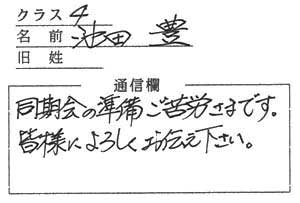 クラス 4
名前 池田 豊
旧姓
通信欄
同期会の準備ご苦労さまです。
皆様によろしくお伝え下さい。